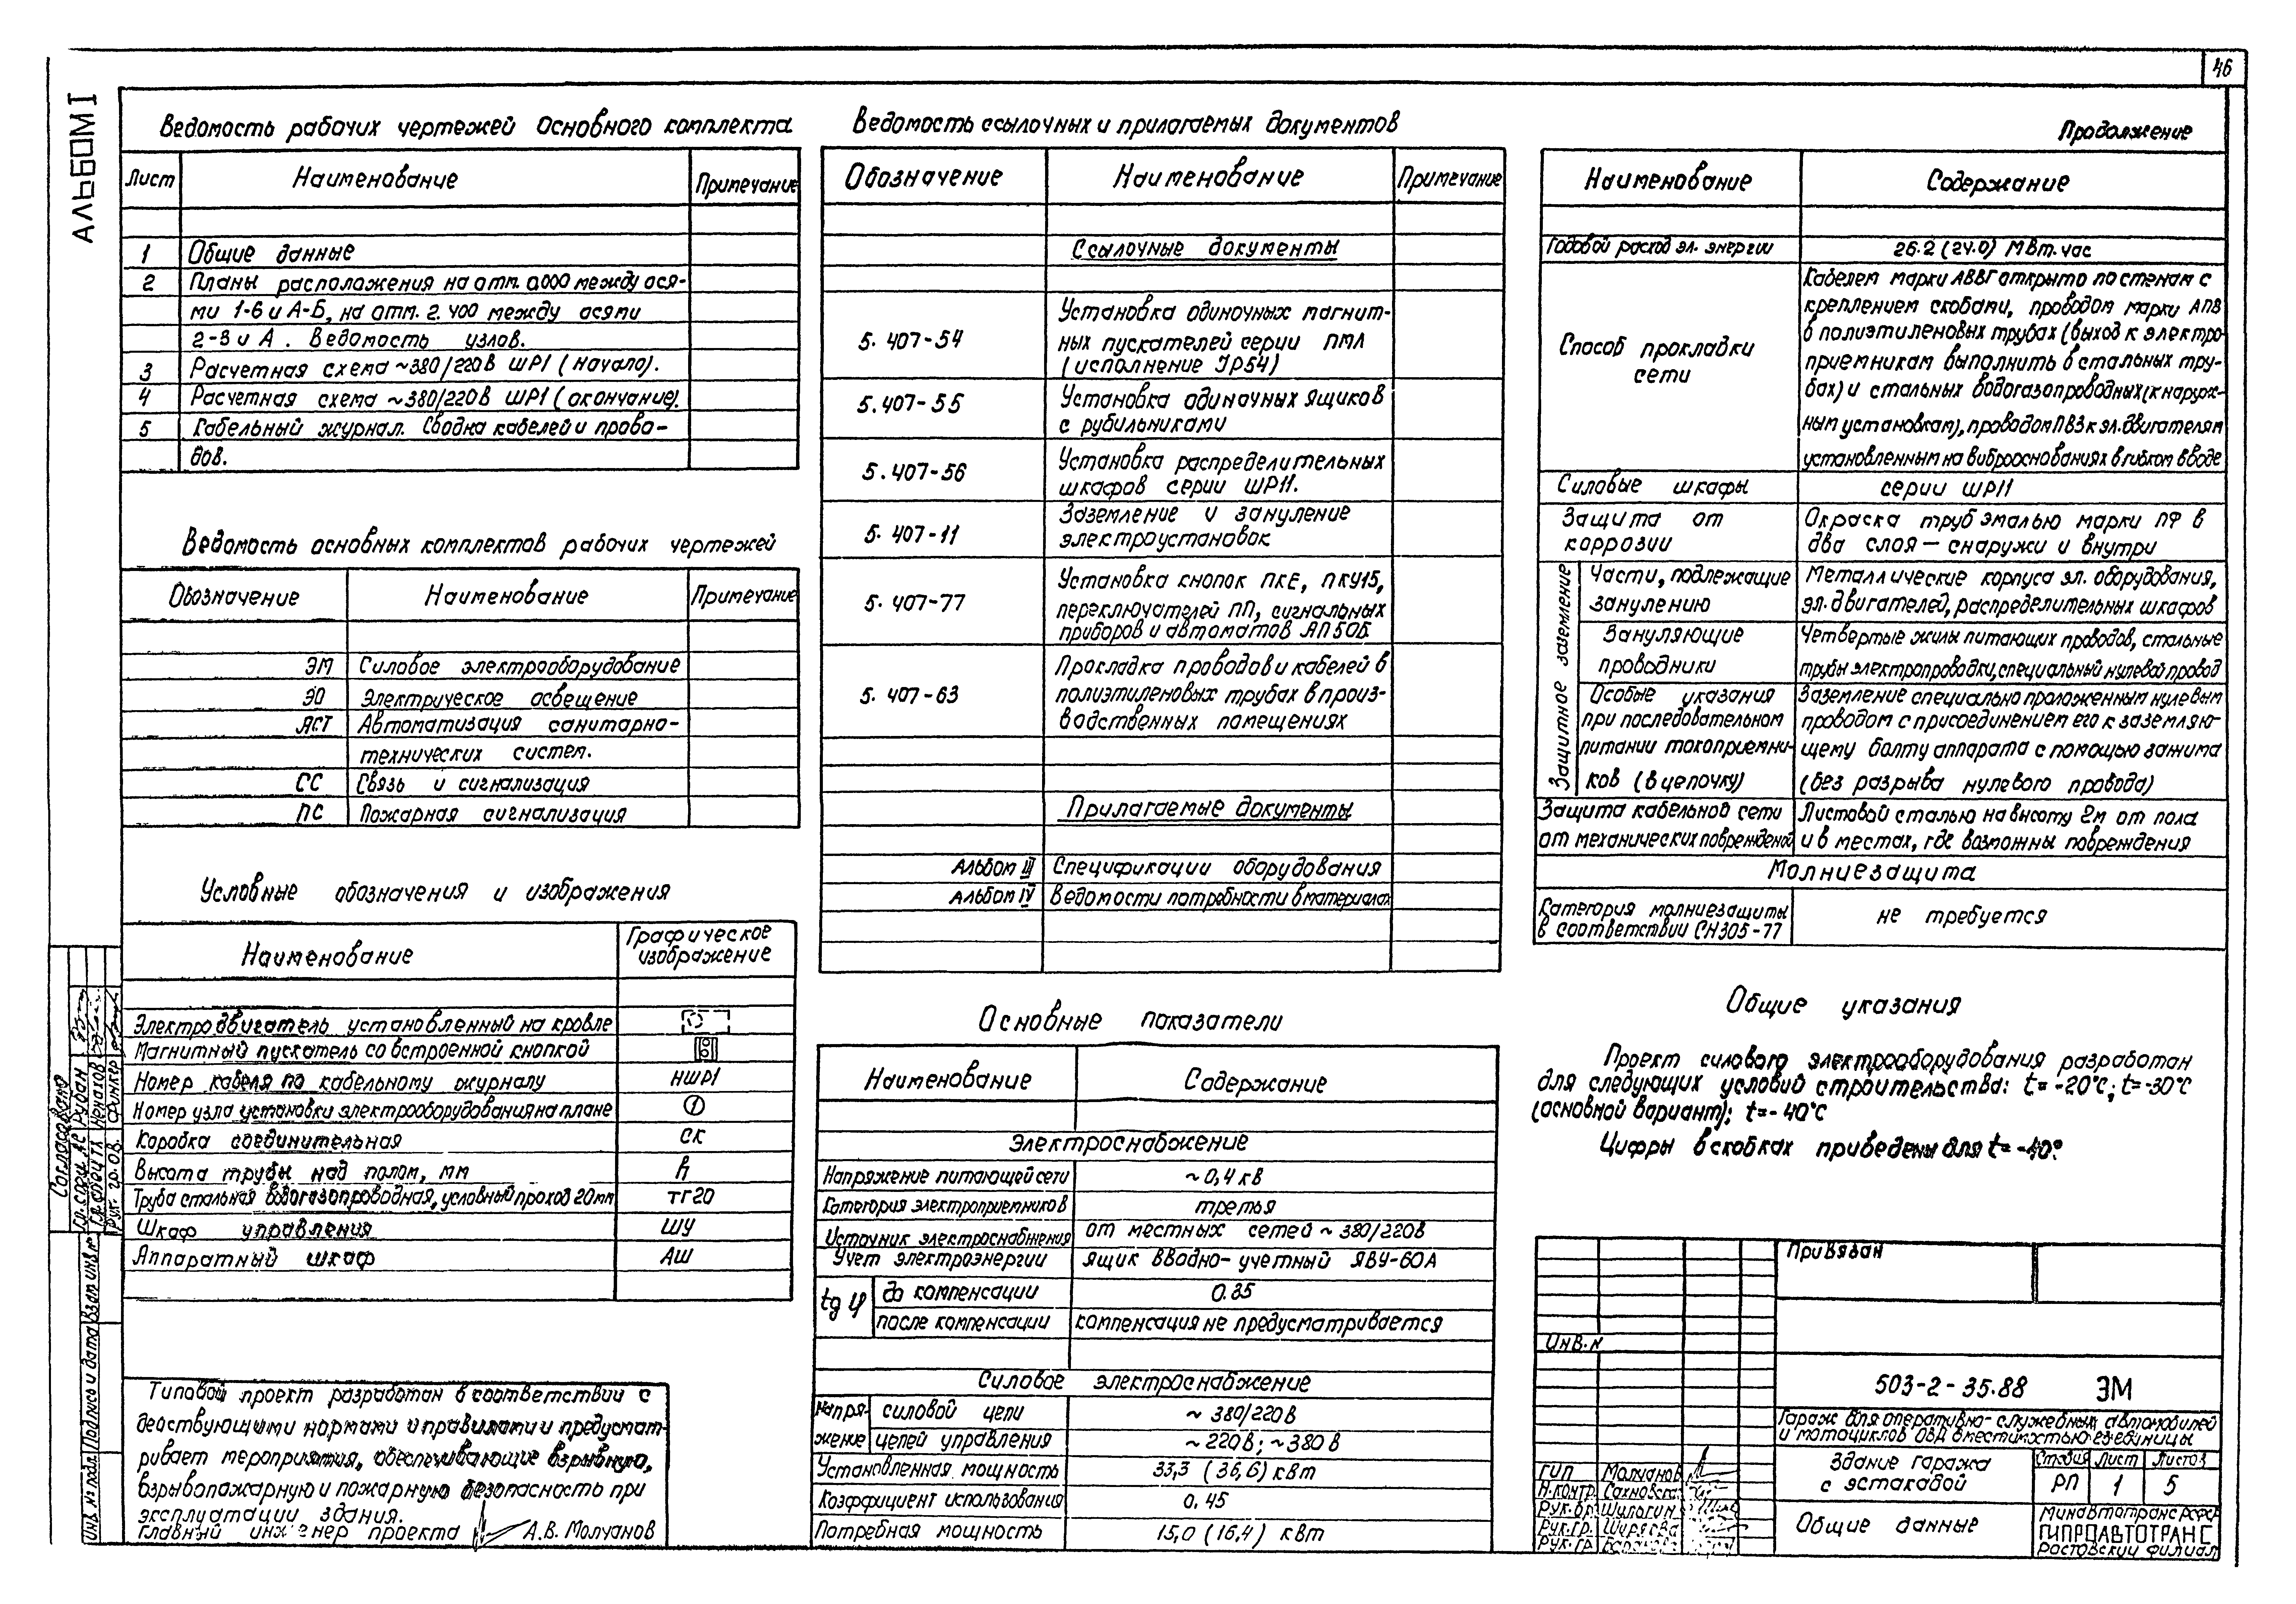 46
АЛЬБОМ I
Ведомость рабочих чертежей основного комплекта
Лист Наименование Примечание
1 Общие данные
2 Планы расположения на отм. 0.000 между ося-
ми 1-6 и А-Б, на отм. 2.400 между осями
2-3 и А. Ведомость узлов.
3 Расчетная схема ~380/220В ШР1 (начало).
4 Расчетная схема ~380/220В ШР1 (окончание).
5 Кабельный журнал. Сводка кабелей и прово-
дов.
Ведомость основных комплектов рабочих чертежей
Обозначение Наименование Примечание
ЭМ Силовое электрооборудование
ЭО Электрическое освещение
АСТ Автоматизация санитарно-
технических систем.
СС Связь и сигнализация
ПС Пожарная сигнализация
Условные обозначения и изображения
Наименование Графическое
изображение
Электродвигатель установленный на кровле
Магнитный пускатель со встроенной кнопкой
Номер кабеля по кабельному журналу НШР1
Номер узла установки электрооборудования на плане 1
Коробка соединительная СК
Высота трубы над полом, мм h
Труба стальная водогазопроводная, условный проход 20мм тг20
Шкаф управления ШУ
Аппаратный шкаф АШ
Типовой проект разработан в соответствии с
действующими нормами и правилами и предусмат-
ривает мероприятия, обеспечивающие взрывную,
взрывопожарную и пожарную безопасность при
эксплуатации здания.
Главный инженер проекта А.В. Молчанов
Ведомость ссылочных и прилагаемых документов
Обозначение Наименование Примечание
Ссылочные документы
5.407-54 Установка одиночных магнит-
ных пускателей серии ПМЛ
(исполнение JP54)
5.407-55 Установка одиночных ящиков
с рубильниками
5.407-56 Установка распределительных
шкафов серии ШР11.
5.407-11 Заземление и зануление
электроустановок
5.407-77 Установка кнопок ПКЕ, ПКУ15,
переключателей ПП, сигнальных
приборов и автоматов АП50Б
5.407-63 Прокладка проводов и кабелей в
полиэтиленовых трубах в произ-
водственных помещениях
Прилагаемые документы
Альбом III Спецификации оборудования
Альбом IV Ведомости потребности в материалах
Основные показатели
Наименование Содержание
Электроснабжение
Напряжение питающей сети ~0,4 кВ
Категория электроприемников третья
Источник электроснабжения от местных сетей ~380/220В
Учет электроэнергии ящик вводно-учетный ЯВУ-60А
tg φ до компенсации 0.85
после компенсации компенсация не предусматривается
Силовое электроснабжение
Напря- силовой цепи ~ 380/220В
жение цепей управления ~220В; ~380В
Установленная мощность 33,3 (36,6) кВт
Коэффициент использования 0,45
Потребная мощность 15,0 (16,4) кВт
Продолжение
Наименование Содержание
Годовой расход эл. энергии 26.2 (24.0) МВт.час
Способ прокладки
сети
Кабелем марки АВВГ открыто по стенам с
креплением скобами, проводом марки АПВ
в полиэтиленовых трубах (выход к электро-
приемникам выполнить в стальных тру-
бах) и стальных водогазопроводных (к наруж-
ным установкам), проводом ПВ3 к эл. двигателям
установленным на виброоснованиях в гибком вводе
Силовые шкафы серии ШР11
Защита от
коррозии
Окраска труб эмалью марки ПФ в
два слоя — снаружи и внутри
Защитное заземление
Части, подлежащие
занулению
Металлические корпуса эл. оборудования,
эл. двигателей, распределительных шкафов
Зануляющие
проводники
Четвертые жилы питающих проводов, стальные
трубы электропроводки, специальный нулевой провод
Особые указания
при последовательном
питании токоприемни-
ков (в цепочку)
Заземление специально проложенным нулевым
проводом с присоединением его к заземляю-
щему болту аппарата с помощью зажима
(без разрыва нулевого провода)
Защита кабельной сети
от механических повреждений
Листовой сталью на высоту 2м от пола
и в местах, где возможны повреждения
Молниезащита
Категория молниезащиты
в соответствии СН305-77
не требуется
Общие указания
Проект силового электрооборудования разработан
для следующих условий строительства: t= -20°С; t= -30°С
(основной вариант); t= -40°С
Цифры в скобках приведены для t= -40°.
Привязан
Инв. N
503-2-35.88 ЭМ
Гараж для оперативно-служебных автомобилей
и мотоциклов ОВД вместимостью единицы
Здание гаража
с эстакадой
Стадия Лист Листов
РП 1 5
Общие данные
Минавтотранс РСФСР
ГИПРОАВТОТРАНС
Ростовский филиал
ГИП Молчанов
Н.контр. Сахновская
Рук. бр. Шулогин
Рук. гр. Ширяева
Рук. гр.
Согласовано
Гл. спец. АС Рудан
Гл. спец. ТХ Ненахов
Рук. гр. ОВ. Функер
Взам инв. №
Подпись и дата
Инв. № подл.